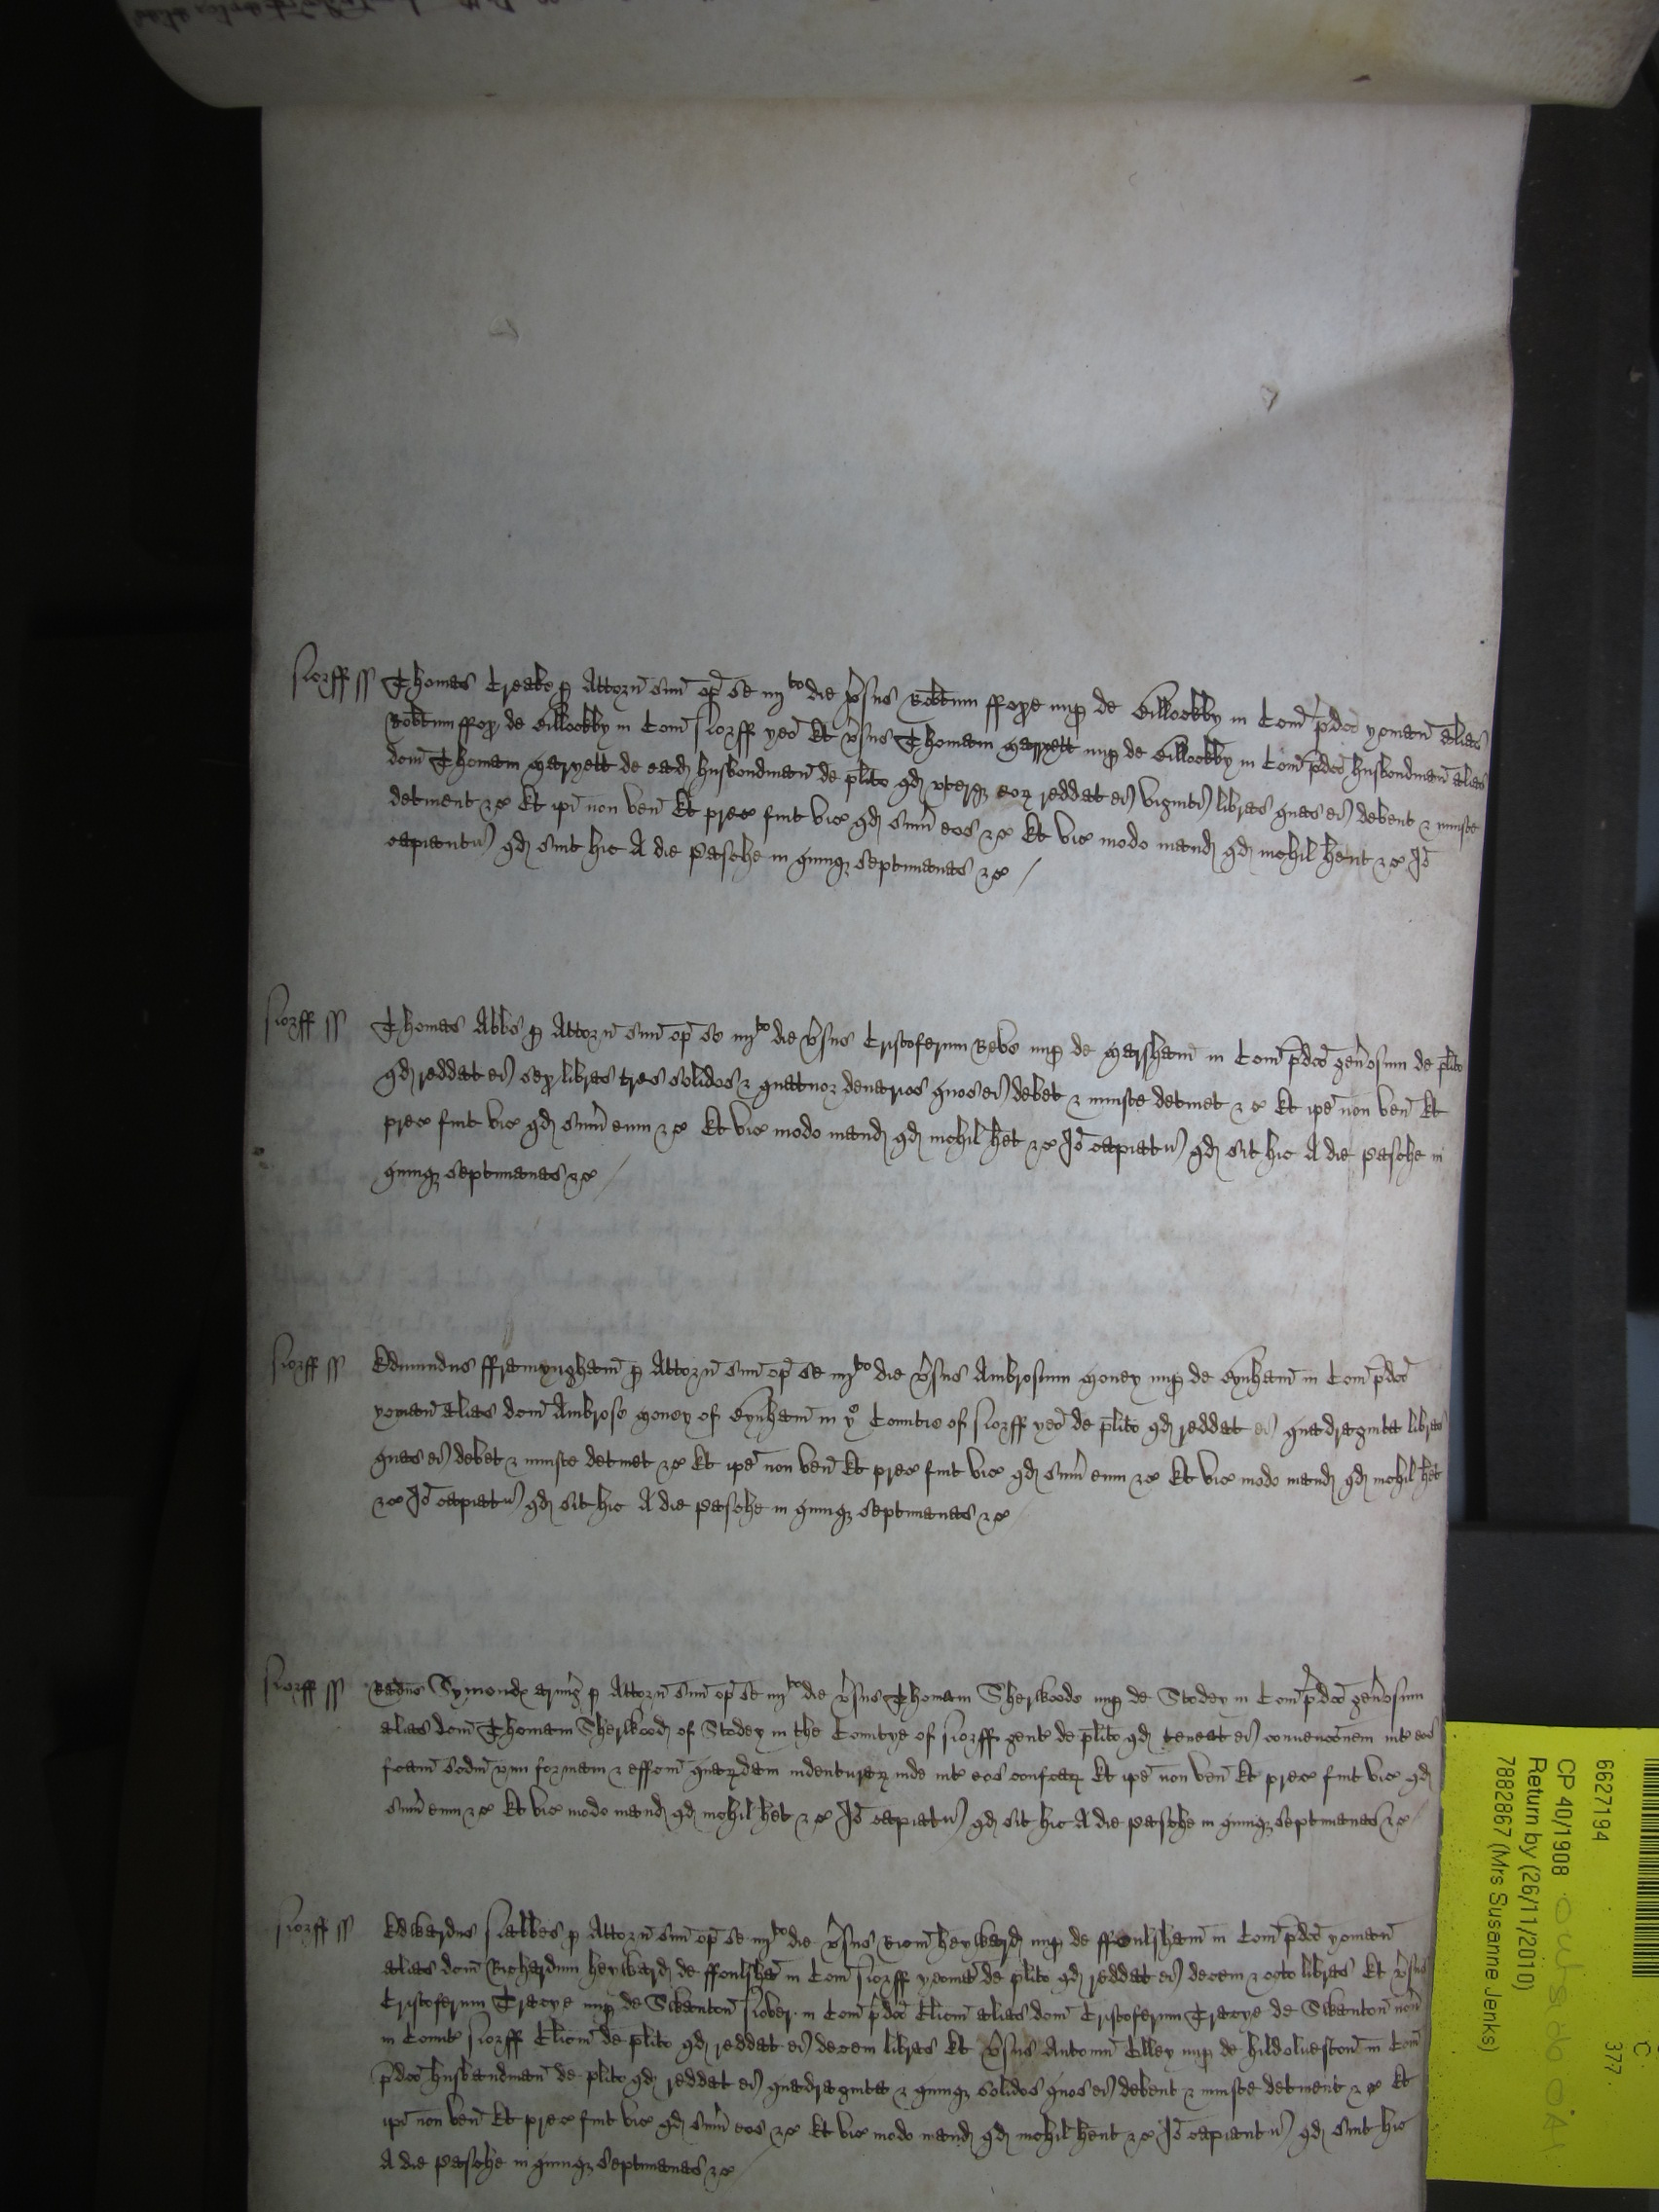 Norff ss Thomas Creake p Attorn suu op se iiijto die vsus Robtum ffoxe nup de Billockby in Com pdco yoman alias
Robtum ffox de Billockby in Com Norff yeo Et vsus Thomam Maryett nup de Billockby in Com pdco husbondman alias
dcm Thomam Maryett de ead husbondman de plito qd uterq eor reddat ei viginti libras quas ei debent & iniuste
detinent &c Et ipi non ven Et prec fuit vic qd sum eos &c Et vic modo mand qd nichil hent &c Io
capiantr qd sint hic A die Pasche in quinq septimanas &c
Norff ss Thomas Abbs p Attorn suu op se iiijto die vsus Cristoferum Reve nup de Marsham in Com pdco generosum de plito
qd reddat ei sex libras tres solidos & quatuor denarios quos ei debet & iniuste detinet &c Et ipe non ven Et
prec fuit vic qd sum eum &c Et vic modo mand qd nichil het &c Io capiatr qd sit hic A die Pasche in
quinq septimanas &c
Norff ss Edmundus fframyngham p Attorn suu op se iiijto die vsus Ambrosium Money nup de in Com pdco
yoman alias dcm Ambrose Money of in ye Countie of Norff yeo de plito qd reddat ei quadraginta libras
quas ei debet & iniuste detinet &c Et ipe non ven Et prec fuit vic qd sum eum &c Et vic modo mand qd nichil het
&c Io capiatr qd sit hic A die Pasche in quinq septimanas &c
Norff ss Radus Symondx armig p Attorn suu op se iiijto die vsus Thomam Sherwoode nup de Stodey in Com pdco generosum
alias dcm Thomam Sherwood of Stodey in the Countye of Norff gent de plito qd teneat ei convencionem int eos
fcam scdm vim formam & effcm quardam indenturar inde int eos confcar Et ipe non ven Et prec fuit vic qd
sum eum &c Et vic modo mand qd nichil het &c Io capiatr qd sit hic A die Pasche in quinq septimanas &c
Norff ss Edwardus Nalles p Attorn suu op se iiijto die vsus Ricm heyward nup de ffoulsham in Com pdco yoman
alias dcm Richardum heyward de ffoulsha in Com Norff yoma de plito qd reddat ei decem & octo libras Et vsus
Cristoferum Tracye nup de Swanton Nover in Com pdco Clicm alias dcm Cristoferum Tracye de Swanton
in Comit Norff Clicm de plito qd reddat ei decem libras Et vsus Antoniu Elley nup de hildolueston in Com
pdco husbandman de plito qd reddat ei quadraginta & quinq solidos quos ei debent & iniuste detinent &c Et
ipi non ven Et prec fuit vic qd sum eos &c Et vic modo mand qd nichil hent &c Io capiantr qd sint hic
A die Pasche in quinq septimanas &c
C
377
6627194
CP 40/1908
Return by (26/11/2010)
7882867 (Mrs Susanne Jenks)